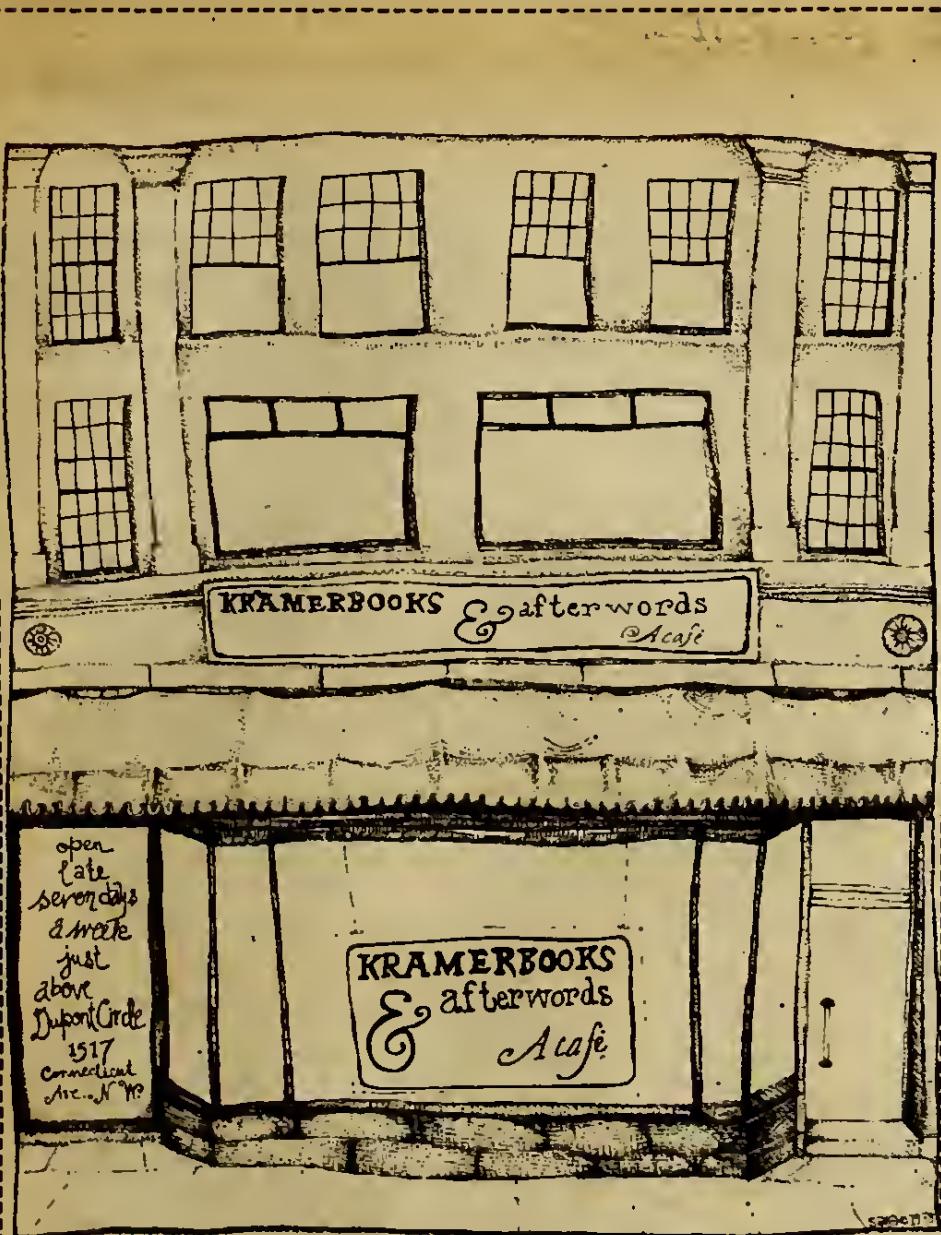 KRAMERBOOKS & afterwords
A café
open
late
seven days
a week
just
above
Dupont Circle
1517
Connecticut
Ave. N W.
KRAMERBOOKS
& afterwords
A café